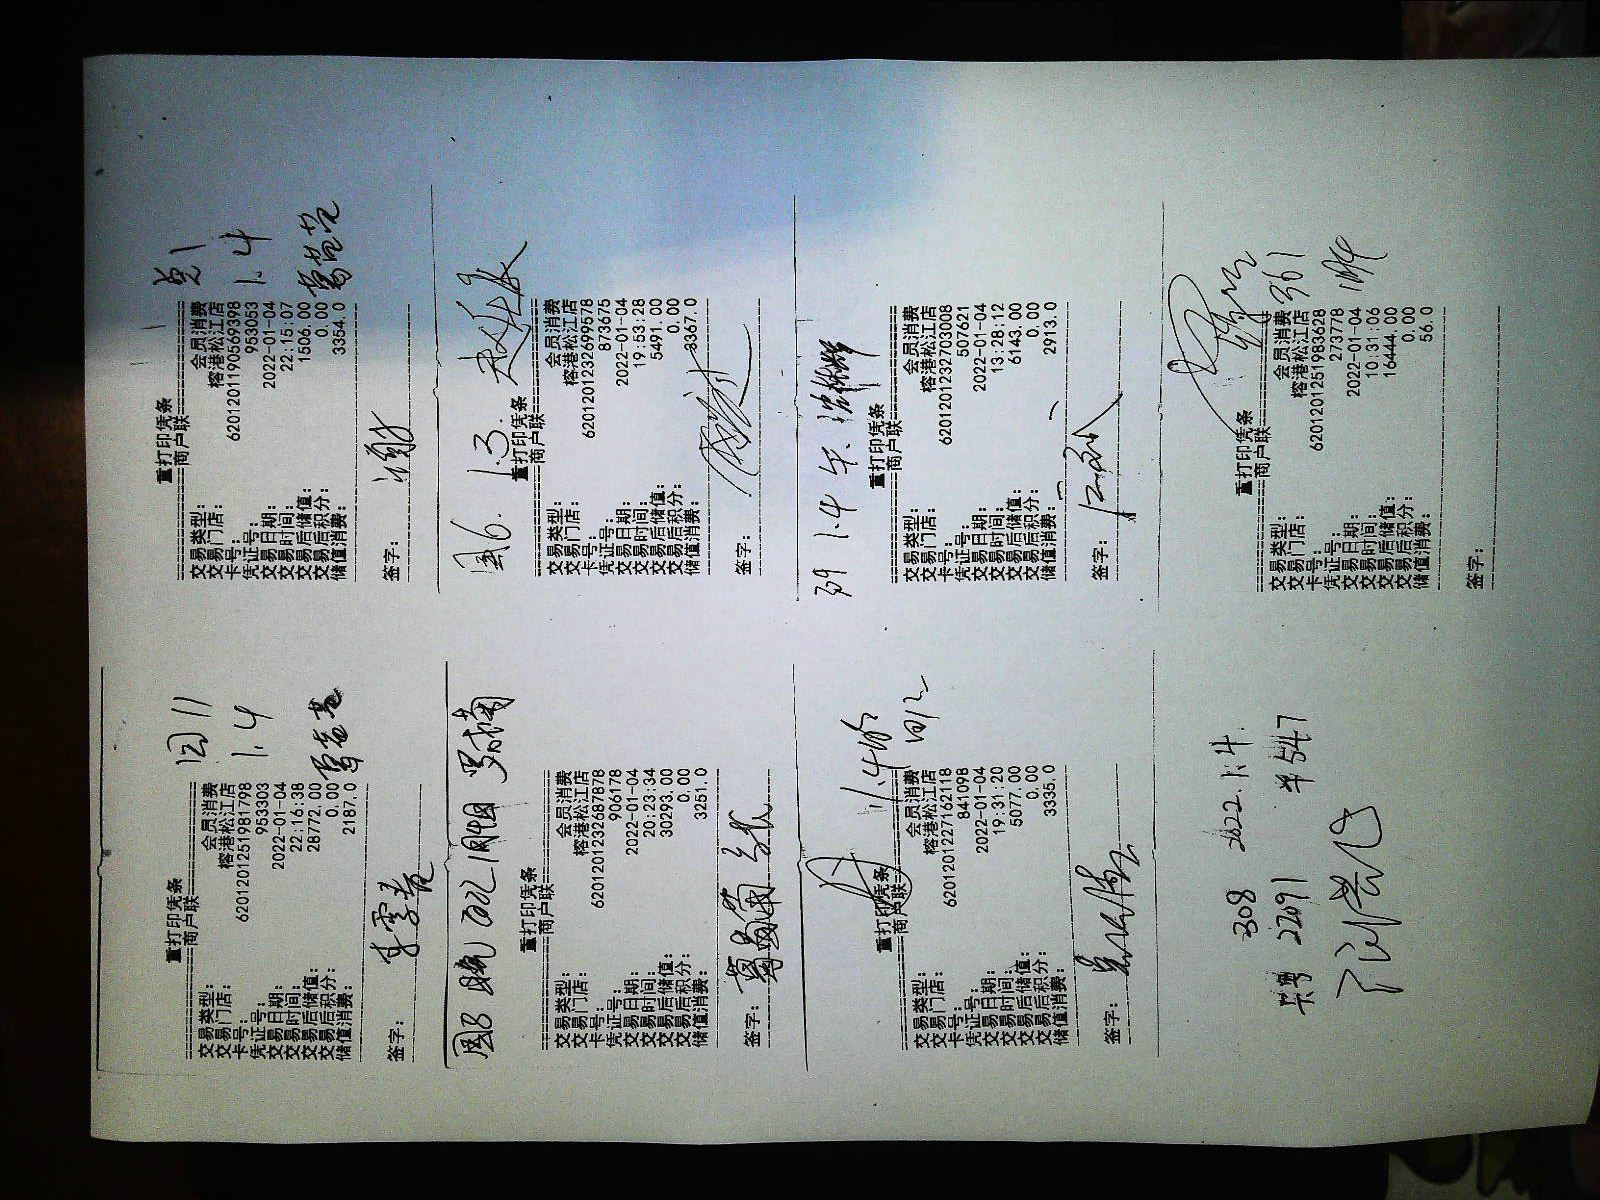 国11
1.4
重打印凭条
商户联
交易类型: 会员消费
交易门店: 榕港松江店
卡号: 6201201251981798
凭证号: 953303
交易日期: 2022-01-04
交易时间: 22:16:38
交易后储值: 28772.00
交易后积分: 0.00
储值消费: 2187.0
签字:
1.4
重打印凭条
商户联
交易类型: 会员消费
交易门店: 榕港松江店
卡号: 6201201190569398
凭证号: 953053
交易日期: 2022-01-04
交易时间: 22:15:07
交易后储值: 1506.00
交易后积分: 0.00
储值消费: 3354.0
签字:
国8
重打印凭条
商户联
交易类型: 会员消费
交易门店: 榕港松江店
卡号: 6201201232687878
凭证号: 906178
交易日期: 2022-01-04
交易时间: 20:23:34
交易后储值: 30293.00
交易后积分: 0.00
储值消费: 3251.0
签字:
国6. 1.3.
重打印凭条
商户联
交易类型: 会员消费
交易门店: 榕港松江店
卡号: 6201201232699578
凭证号: 873675
交易日期: 2022-01-04
交易时间: 19:53:28
交易后储值: 5491.00
交易后积分: 0.00
储值消费: 3367.0
签字:
1.4
重打印凭条
商户联
交易类型: 会员消费
交易门店: 榕港松江店
卡号: 6201201227162118
凭证号: 841098
交易日期: 2022-01-04
交易时间: 19:31:20
交易后储值: 5077.00
交易后积分: 0.00
储值消费: 3335.0
签字:
339 1.4 午.
重打印凭条
商户联
交易类型: 会员消费
交易门店: 榕港松江店
卡号: 6201201232703008
凭证号: 507621
交易日期: 2022-01-04
交易时间: 13:28:12
交易后储值: 6143.00
交易后积分: 0.00
储值消费: 2913.0
签字:
308 2022.1.4.
卡号 2291 ¥547
361
重打印凭条
商户联
交易类型: 会员消费
交易门店: 榕港松江店
卡号: 6201201251983628
凭证号: 273778
交易日期: 2022-01-04
交易时间: 10:31:06
交易后储值: 16444.00
交易后积分: 0.00
储值消费: 56.0
签字: